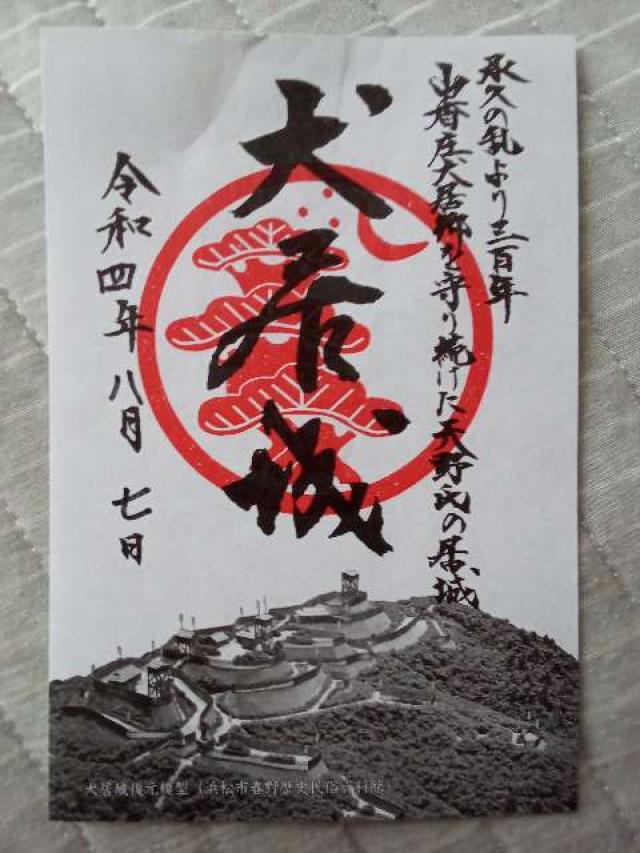 承久の乱より三百年
山香庄犬居郷を守り続けた天野氏の居城
犬居城
令和四年八月七日
犬居城復元模型（浜松市春野歴史民俗資料館）